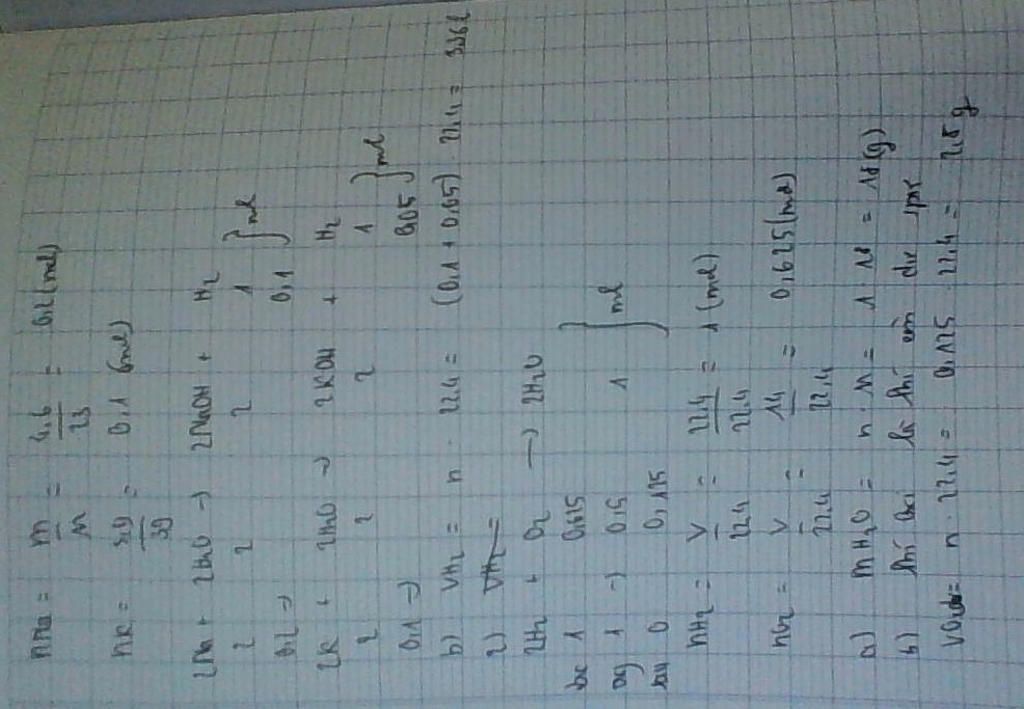 nNa = m/M = 4,6/23 = 0,2 (mol)
nK = 3,9/39 = 0,1 (mol)
2Na + 2H₂O → 2NaOH + H₂
2 2 2 1 } mol
0,2 → 0,1
2K + 2H₂O → 2KOH + H₂
2 2 2 1 } mol
0,1 → 0,05
b) VH₂ = n . 22,4 = (0,1 + 0,05) . 22,4 = 3,36 l
2) VH₂ =
2H₂ + O₂ → 2H₂O
1 0,625
1 → 0,5 1 } mol
0 0,125
nH₂ = V/22,4 = 22,4/22,4 = 1 (mol)
nO₂ = V/22,4 = 14/22,4 = 0,625 (mol)
a) mH₂O = n . M = 1 . 18 = 18 (g)
b) khí oxi là khí còn dư spư
VO₂ dư = n . 22,4 = 0,125 . 22,4 = 2,8 g